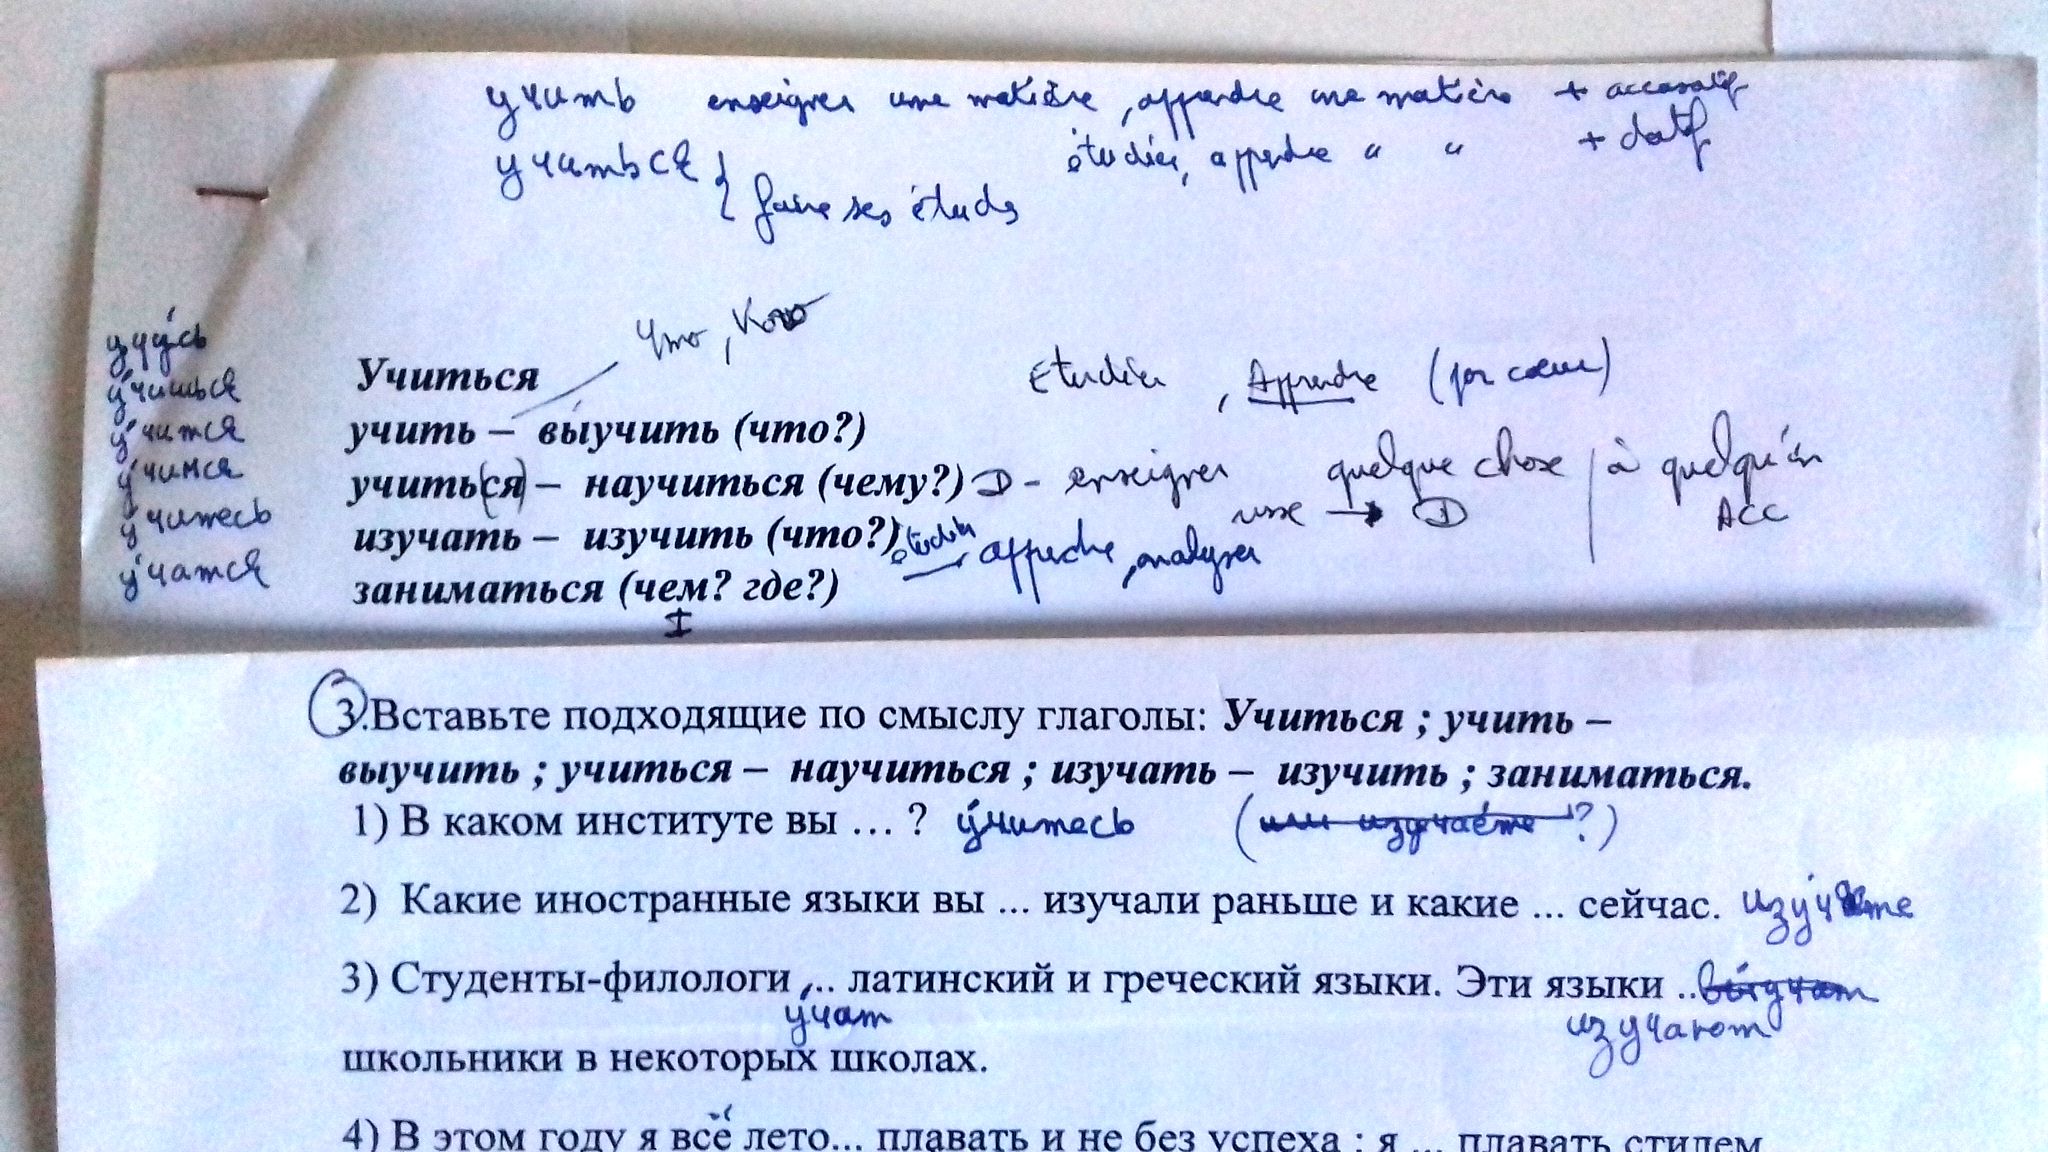 учить enseigner une matière, apprendre une matière + accusatif
учиться { étudier, apprendre " " + datif
faire ses études
что, кого
учу́сь
у́чишься
у́чится
у́чимся
у́читесь
у́чатся
Учиться Etudier, Apprendre (par coeur)
учить – вы́учить (что?)
учить(ся) – научиться (чему?) D - enseigner quelque chose / à quelqu'un
use → D ACC
изучать – изучить (что?) étudier, apprendre, analyser
заниматься (чем? где?)
I
3.Вставьте подходящие по смыслу глаголы: Учиться ; учить –
выучить ; учиться – научиться ; изучать – изучить ; заниматься.
1) В каком институте вы … ? у́читесь (или изучаете ?)
2) Какие иностранные языки вы ... изучали раньше и какие ... сейчас.
3) Студенты-филологи ... латинский и греческий языки. Эти языки ..вы́учат
у́чат изучают
школьники в некоторых школах.
4) В этом году я всё лето... плавать и не без успеха : я ... плавать стилем